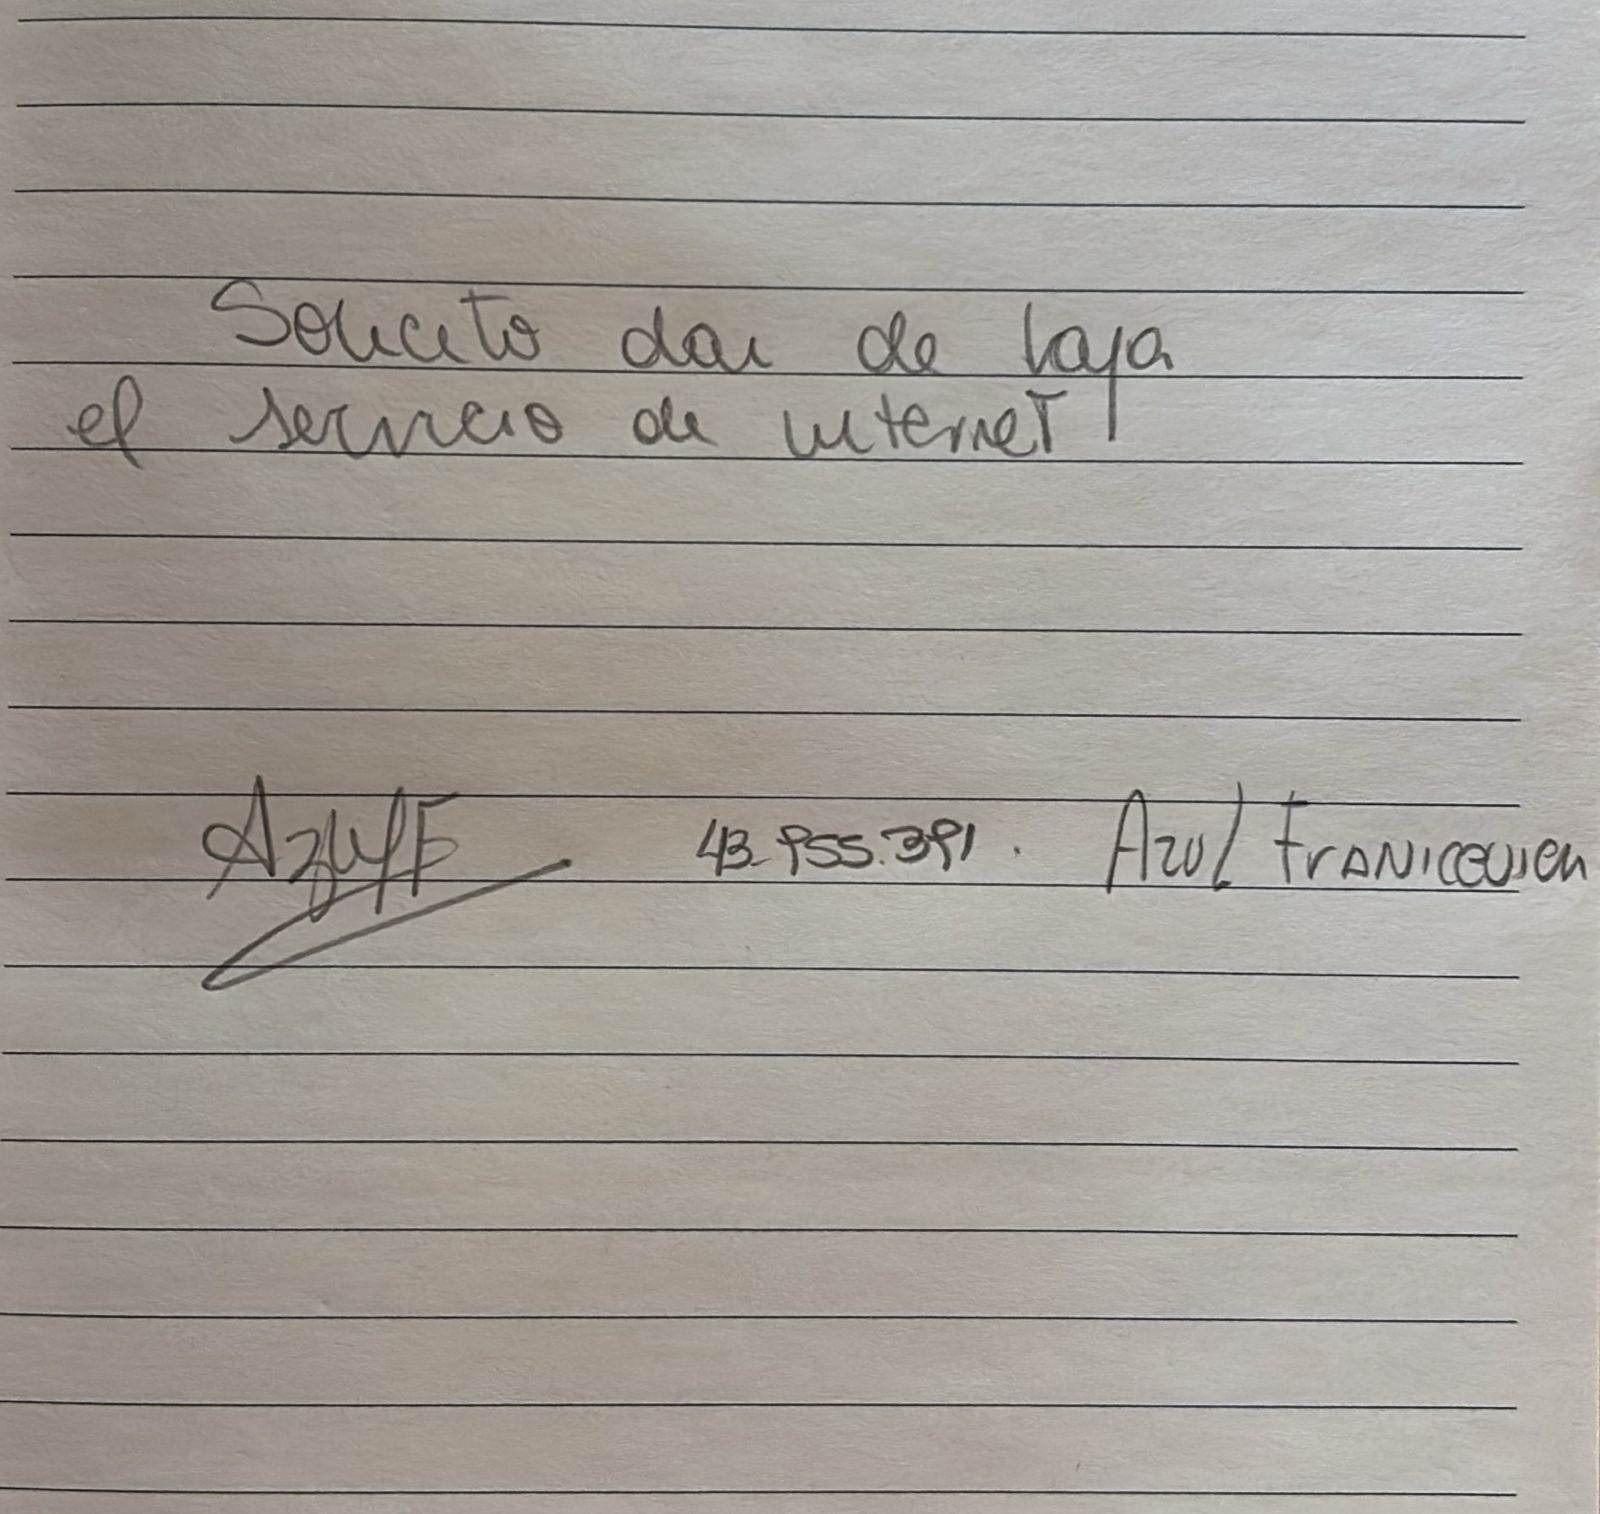 Solicito dar de baja
el servicio de internet
AzulF 43.955.391. Azul Franicevich